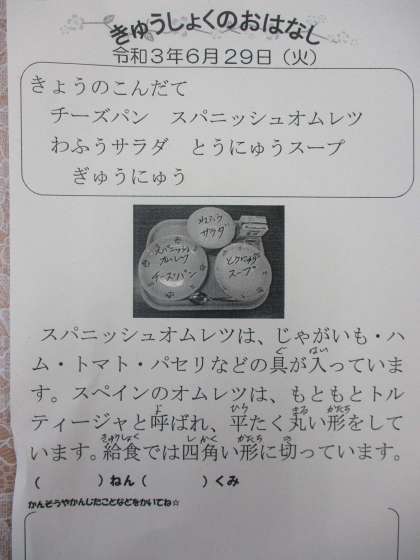 きゅうしょくのおはなし
令和3年6月29日（火）
きょうのこんだて
チーズパン　スパニッシュオムレツ
わふうサラダ　とうにゅうスープ
ぎゅうにゅう
わふう
サラダ
スパニッシュ
オムレツ
チーズパン
とうにゅう
スープ
スパニッシュオムレツは、じゃがいも・ハ
ぐ　はい
ム・トマト・パセリなどの具が入っていま
す。スペインのオムレツは、もともとトル
よ　ひら　まる　かたち
ティージャと呼ばれ、平たく丸い形をして
きゅうしょく　しかく　かたち　き
います。給食では四角い形に切っています。
（　　　）ねん（　　　）くみ
かんそうやかんじたことなどをかいてね☆